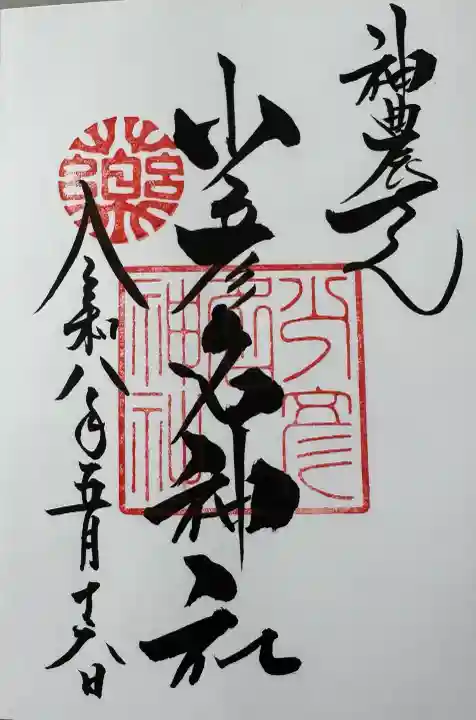 神農さん
少彦名神社
令和八年五月十六日
少彦名神社